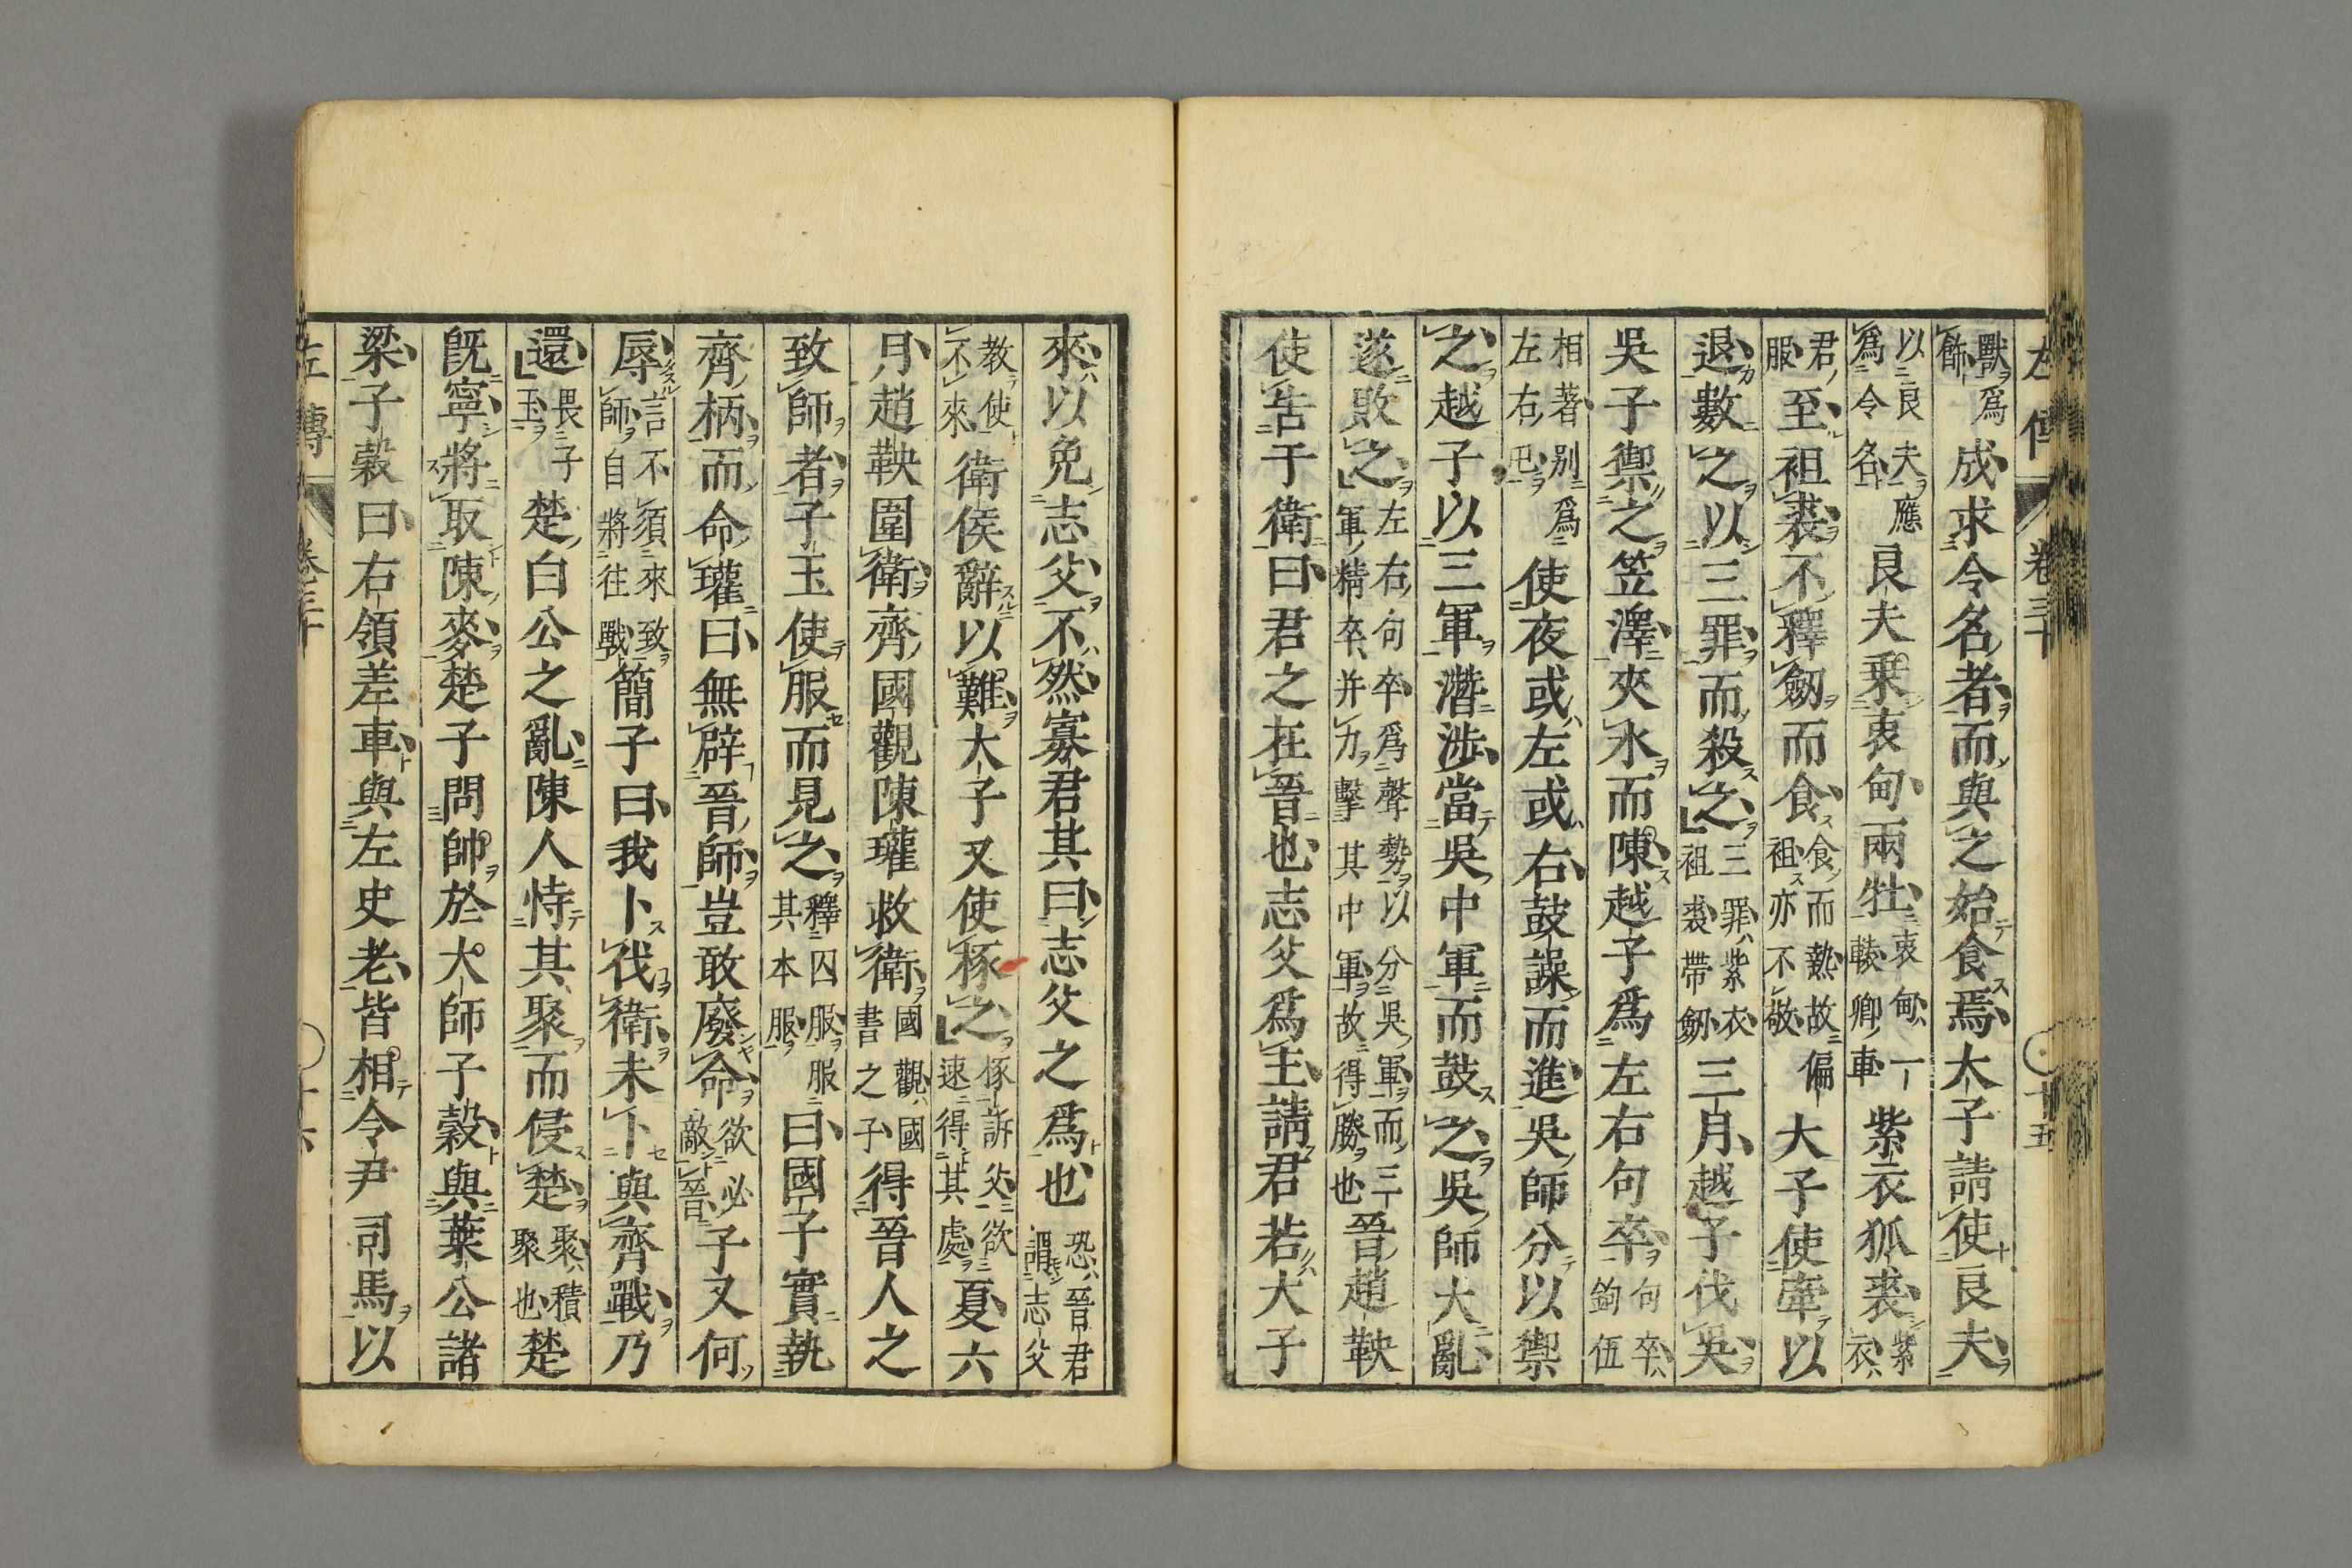 左傳 卷三十 十五
獸爲飾成求令名者而與之始食焉大子請使良夫
以良夫應爲令名良夫乗衷甸兩牡衷甸一轅卿車紫衣狐裘紫衣
君服至袒裘不釋劔而食食而熱故偏袒亦不敬大子使牽以
退數之以三罪而殺之三罪紫衣袒裘帶劔三月越子伐吳
吳子禦之笠澤夾水而陳越子爲左右句卒句卒鉤伍
相著別爲左右屯使夜或左或右鼓譟而進吳師分以禦
之越子以三軍潛涉當吳中軍而鼓之吳師大亂
遂敗之左右句卒爲聲勢以分吳軍而三軍精卒并力擊其中軍故得勝也晉趙鞅
使告于衛曰君之在晉也志父爲主請君若大子
來以免志父不然寡君其曰志父之爲也恐晉君謂志父
教使不來衛侯辭以難大子又使椓之椓訴父欲速得其處夏六
月趙鞅圍衛齊國觀陳瓘救衛國觀國書之子得晉人之
致師者子玉使服而見之釋囚服服其本服曰國子實執
齊柄而命瓘曰無辟晉師豈敢廢命欲必敵晉子又何
辱言不須來致師自將往戰簡子曰我卜伐衛未卜與齊戰乃
還畏子玉楚白公之亂陳人恃其聚而侵楚聚積聚也楚
既寧將取陳麥楚子問帥於大師子穀與葉公諸
梁子穀曰右領差車與左史老皆相令尹司馬以
左傳 卷三十 十六